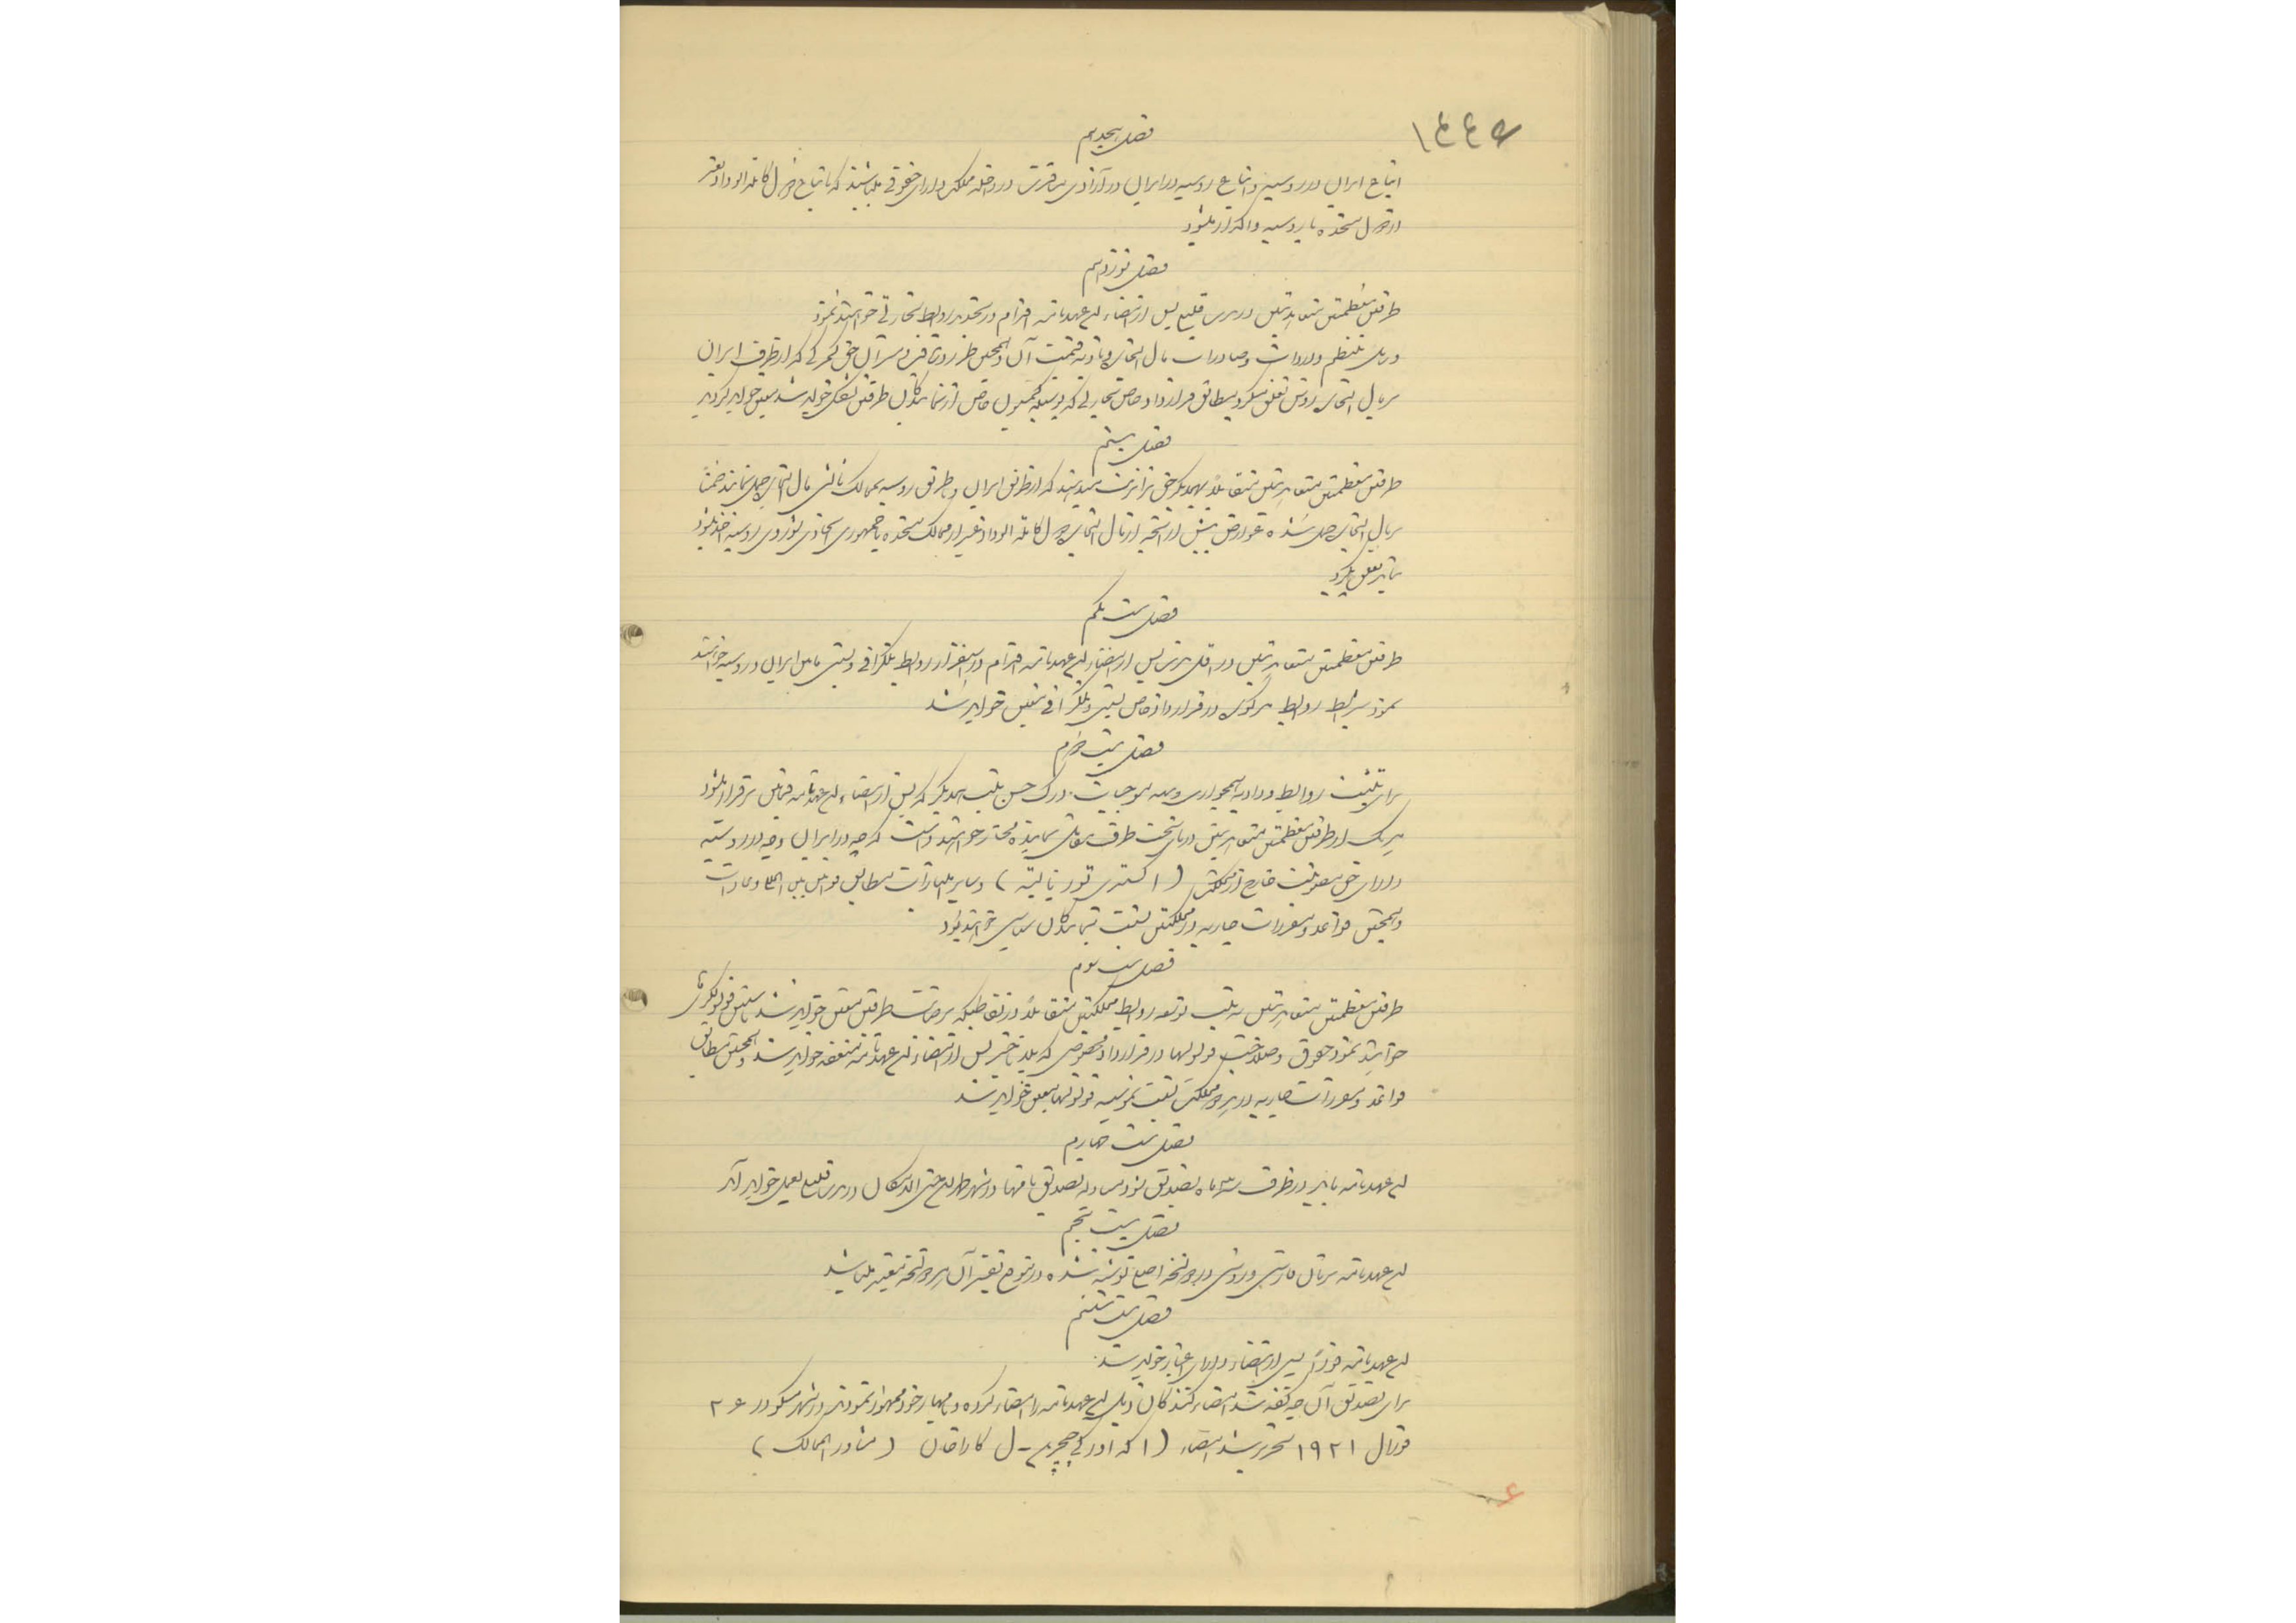 ۱۴۴۶
فصل هیجدهم
اتباع ایران در روسیه و اتباع روسیه در ایران در آزادی مسافرت در داخله مملکت دارای حقوقی میباشند که باتباع دول کاملة الوداد بغیر
از دول متحده با روسیه واگذار میشود
فصل نوزدهم
طرفین معظمتین متعاهدتین در مدت قلیلی پس از امضاء این عهدنامه اقدام در تجدید روابط تجارتی خواهند نمود
وسائل تنظیم واردات و صادرات مال التجاره و تادیه قیمت آن و همچنین طرز دریافت و میزان حق گمرکی که از طرف ایران
بر مال التجاره روس تعلق میگیرد مطابق قرارداد خاص تجارتی که بوسیله کمیسیون خاص از نمایندگان طرفین تشکیل خواهد شد معین خواهد گردید
فصل بیستم
طرفین معظمتین متعاهدتین متقابلاً بهمدیگر حق ترانزیت میدهند که از طریق ایران و یا طریق روسیه بممالک ثالثی مال التجاره حمل نمایند ضمناً
برمال التجاره حمل شده عوارض بیش از آنچه از مال التجاره دول کاملة الوداد غیر از ممالک متحده با جمهوری اتحادی شوروی روسیه اخذ میشود
نباید تعلق بگیرد
فصل بیست یکم
طرفین معظمتین متعاهدتین در اقل مدت پس از امضاء این عهدنامه اقدام در استقرار روابط تلگرافی و پستی مابین ایران و روسیه خواهند
نمود شرایط روابط مذکوره در قرارداد خاص پستی و تلگرافی معین خواهد شد
فصل بیست دوم
برای تثبیت روابط ودادیه همجواری و تهیه موجبات درک حسن نیت همدیگر که پس از امضاء این عهدنامه فیمابین برقرار میشود
هر یک از طرفین معظمتین متعاهدتین در پایتخت طرف مقابل نماینده مختار خواهند داشت که چه در ایران و چه در روسیه
دارای حق مصونیت خارج از مملکت ( اکستری توریالیته ) و سایر امتیازات مطابق قوانین بین المللی و عادات
و همچنین قواعد و مقررات جاریه در مملکتین نسبت بنمایندگان سیاسی خواهند بود
فصل بیست سوم
طرفین معظمتین متعاهدتین به نیت توسعه روابط مملکتین متقابلاً در نقاطیکه برضایت طرفین معین خواهد شد تاسیس قونسولگریها
خواهند نمود حقوق و صلاحیت قونسولها در قرارداد مخصوصی که بلا تاخیر پس از امضاء این عهدنامه منعقد خواهد شد و همچنین مطابق
قواعد و مقررات جاریه در هر دو مملکت نسبت بموسسه قونسولها معین خواهد شد
فصل بیست چهارم
این عهدنامه باید در ظرف سه ماه تصدیق شود مبادله تصدیق نامها در شهر طهران حتی الامکان در مدت قلیلی بعمل خواهد آمد
فصل بیست پنجم
این عهدنامه بزبان فارسی و روسی در دو نسخه اصلی نوشته شده در موقع تفسیر آن هر دو نسخه معتبر میباشد
فصل بیست ششم
این عهدنامه فوراً پس از امضاء دارای اعتبار خواهد شد
برای تصدیق آن چه گفته شد امضاء کنندگان ذیل این عهدنامه را امضاء کرده و بامهار خود ممهور نمودند در شهر مسکو در ۲۶
فورال ۱۹۲۱ تحریر شد امضاء ( گ آ در کی چیچرین - ل کاراخان ( مشاور الممالک )
۶